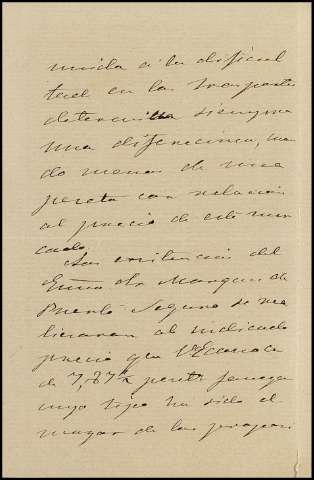 unida á la dificul
tad en los trasportes
determina siempre
una diferencia, cuan
do menos de una
peseta con relacion
al precio de este mer
cado.
Las existencias del
Exmo Sr Marques de
Puerto Seguro se rea
lizaran al indicado
precio que V Econoce
de 7,87½ pents fanega
cuyo tipo ha sido el
mayor de los propor